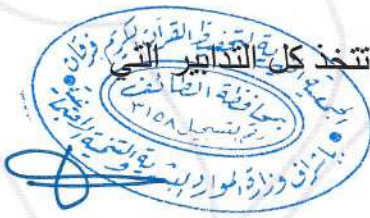 تتخذ كل التدابير التي
الجمعية الخيرية لتحفيظ القرآن الكريم فرقان
بمحافظة الطائف
رقم التسجيل ٣١٥٨
بإشراف وزارة الموارد البشرية والتنمية الاجتماعية